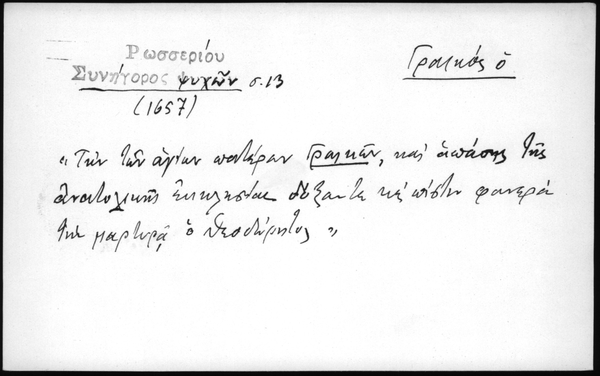 Ρωσσερίου
Συνήγορος ψυχῶν σ. 13
(1657)
Γραικός ὁ
« Τὴν τῶν ἁγίων πατέρων Γραικῶν, καὶ ἁπάσης τῆς
ἀνατολικῆς ἐκκλησίας δόξαν τε καὶ πίστιν φανερὰ
τὴν μαρτυρᾷ ὁ Θεοδώρητος »